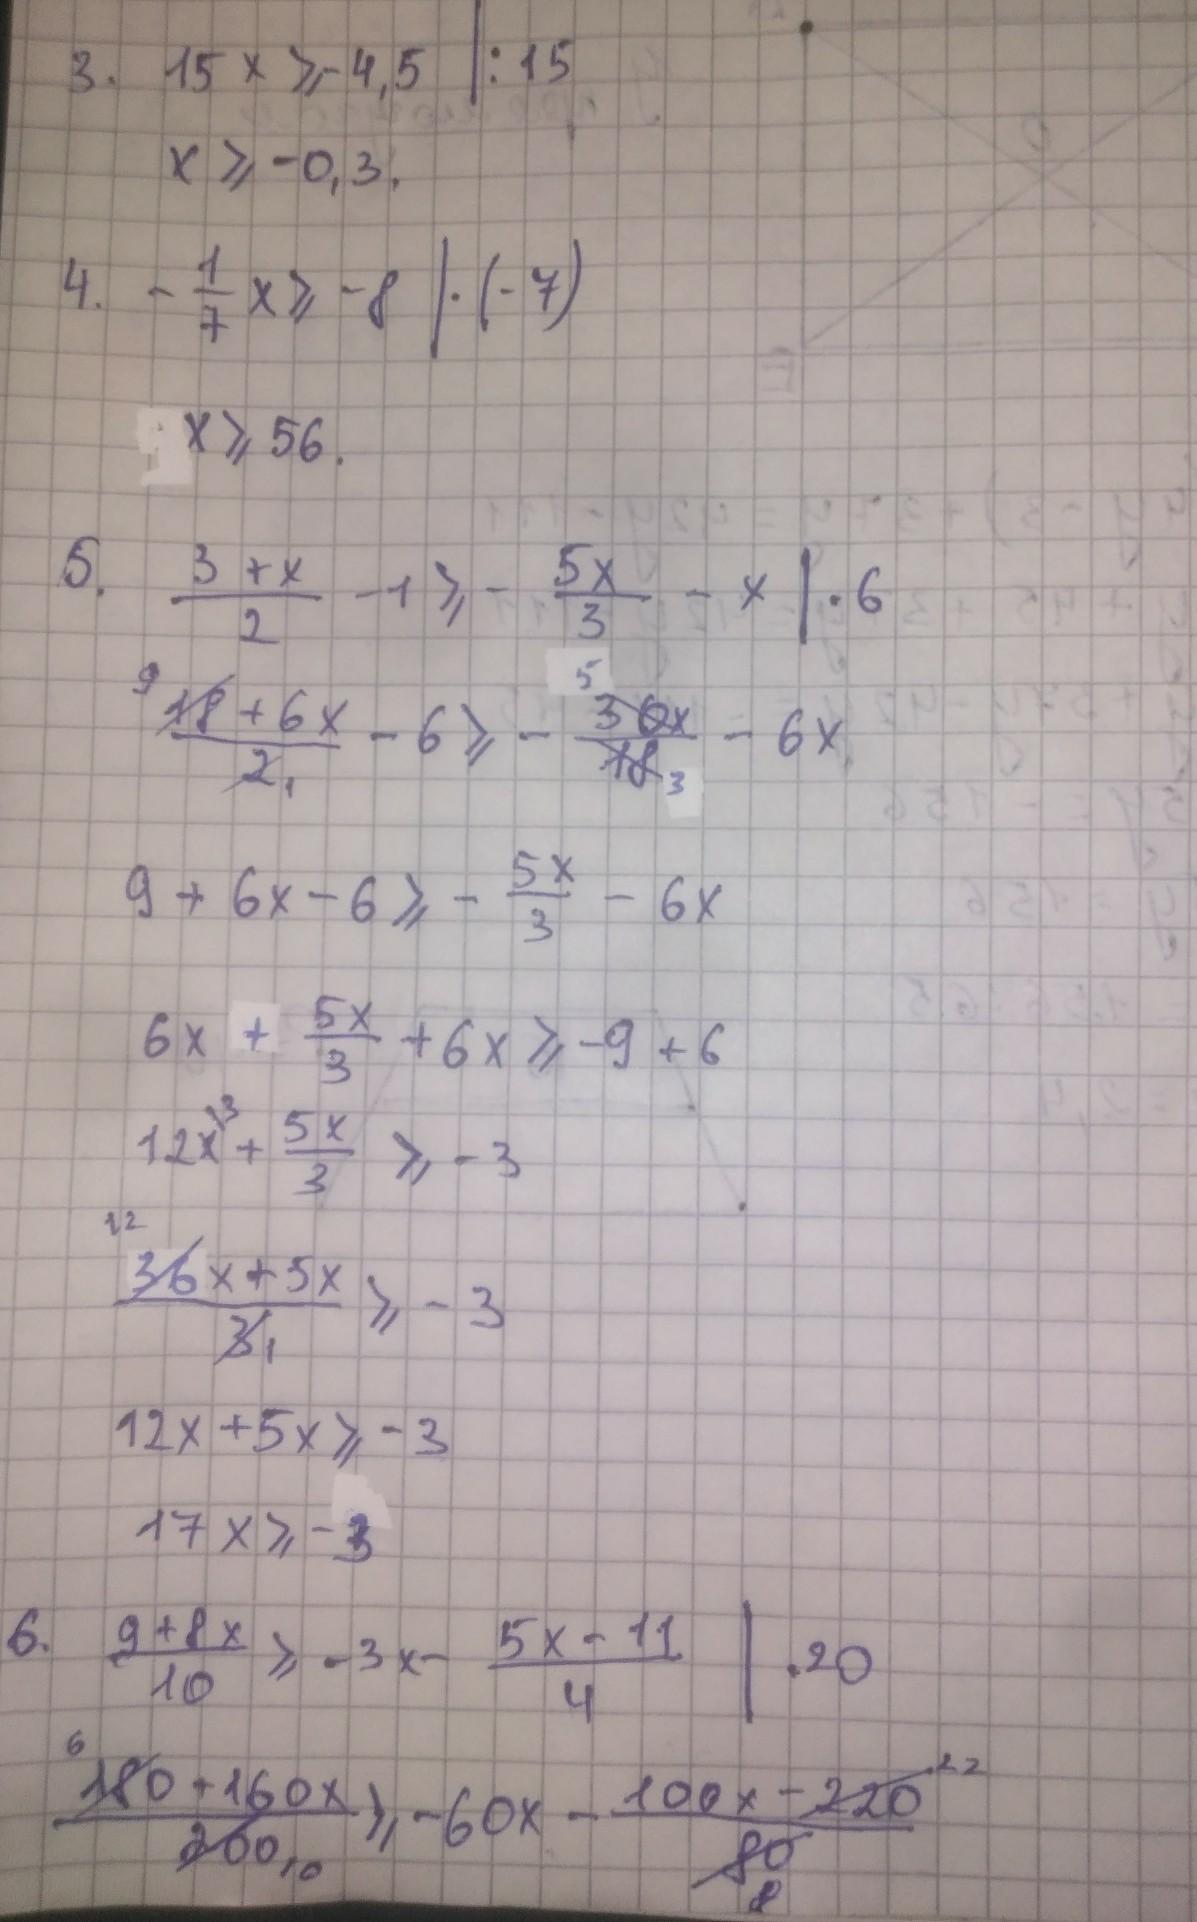 3. 15x ⩾ -4,5 | : 15
x ⩾ -0,3.
4. - 1/7 x ⩾ -8 | · (-7)
x ⩾ 56.
5. (3+x)/2 - 1 ⩾ - 5x/3 - x | · 6
9 (18+6x)/2 1 - 6 ⩾ - 5 30x/18 3 - 6x
9 + 6x - 6 ⩾ - 5x/3 - 6x
6x + 5x/3 + 6x ⩾ -9 + 6
12x \3 + 5x/3 ⩾ -3
12 (36x+5x)/3 1 ⩾ -3
12x + 5x ⩾ -3
17x ⩾ -3
6. (9+8x)/10 ⩾ -3x - (5x-11)/4 | · 20
6 (180+160x)/200 10 ⩾ -60x - (100x-220)/80 8 22